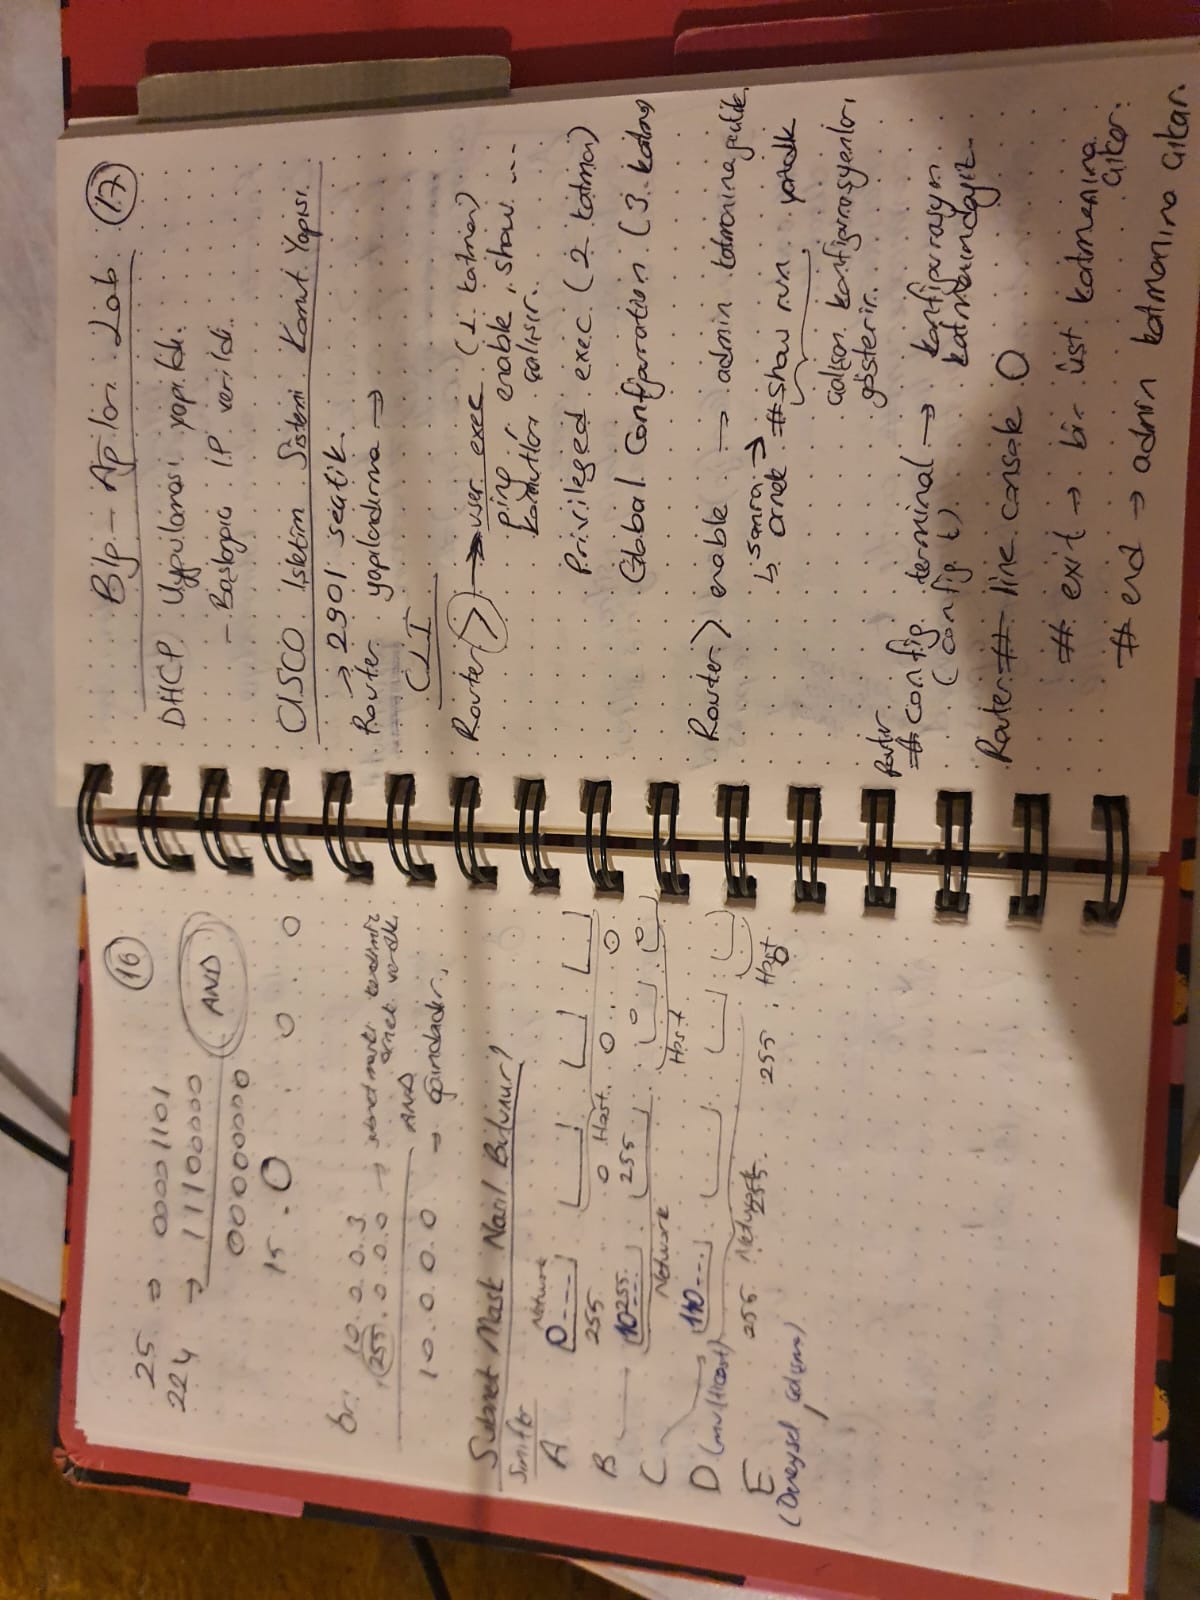 16
25 → 00001101
224 → 11100000
AND
00000000
15 . 0 . 0 . 0
ör: 10.0.0.3
255.0.0.0 → subnet maskı kendimiz
örnek verdik
AND
10.0.0.0 → ağındadır.
Subnet Mask Nasıl Bulunur?
Sınıflar
Network
A 0---
255 0 Host 0 0
B 10 255 --- 255 0 0
C Network Host
110---
D (multicast)
255 Network 255 255 Host 0
E
(Deneysel çalışma)
Blg-Ağları Lab 17
DHCP Uygulaması yapıldı.
- Başlangıç IP verildi.
CISCO İşletim Sistemi Komut Yapısı
→ 2901 seçtik.
Router yapılandırma →
CLI
Router > → user exec (1. katman)
ping, enable, show ...
komutları çalışır.
Privileged exec (2. katman)
Global Configuration (3. katman)
Router > enable → admin katmanına geçtik.
↳ sonra →
örnek # show run yazdık
çalışan konfigürasyonları
gösterir.
Router
# config terminal → konfigurasyon
(config t) katmanındayız.
Router # line console 0
# exit → bir üst katmanına
çıkar.
# end → admin katmanına çıkar.